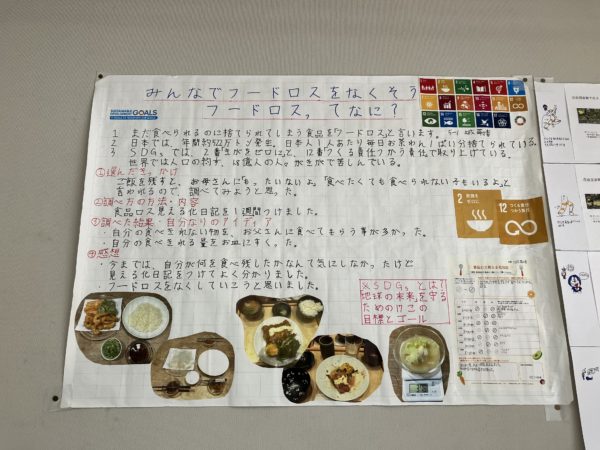 みんなでフードロスをなくそう
フードロス,てなに?
SUSTAINABLE DEVELOPMENT GOALS
1 まだ食べられるのに捨てられてしまう食品を「フードロス」と言います。
2 日本では、年間約522万トン発生。日本人1人あたり毎日お茶わん1ぱい分捨てられている。
3 SDGsでは、2番きがをゼロにと、12番つくる責任つかう責任で取り上げている。
世界では人口の約
人の人々がきがで苦しんでいる。
①選んだきっかけ
ご飯を残すと、お母さんに「もったいないよ。「食べたくても食べられない子もいるよ」と
言われるので、調べてみようと思った。
②調べ方の方法・内容
食品ロス見える化日記を1週間つけました。
③調べた結果・自分なりのアイディア
・自分の食べきれない物を、お父さんに食べてもらう事が多かった。
・自分の食べきれる量をお皿にすくった。
④感想
・今までは、自分が何を食べ残したかなんて気にしなかったけど
見える化日記をつけてよく分かりました。
・フードロスをなくしていこうと思いました。
※SDGsとは?
地球の未来を守る
ための17この
目標とゴール
2 飢餓をゼロに
12 つくる責任つかう責任